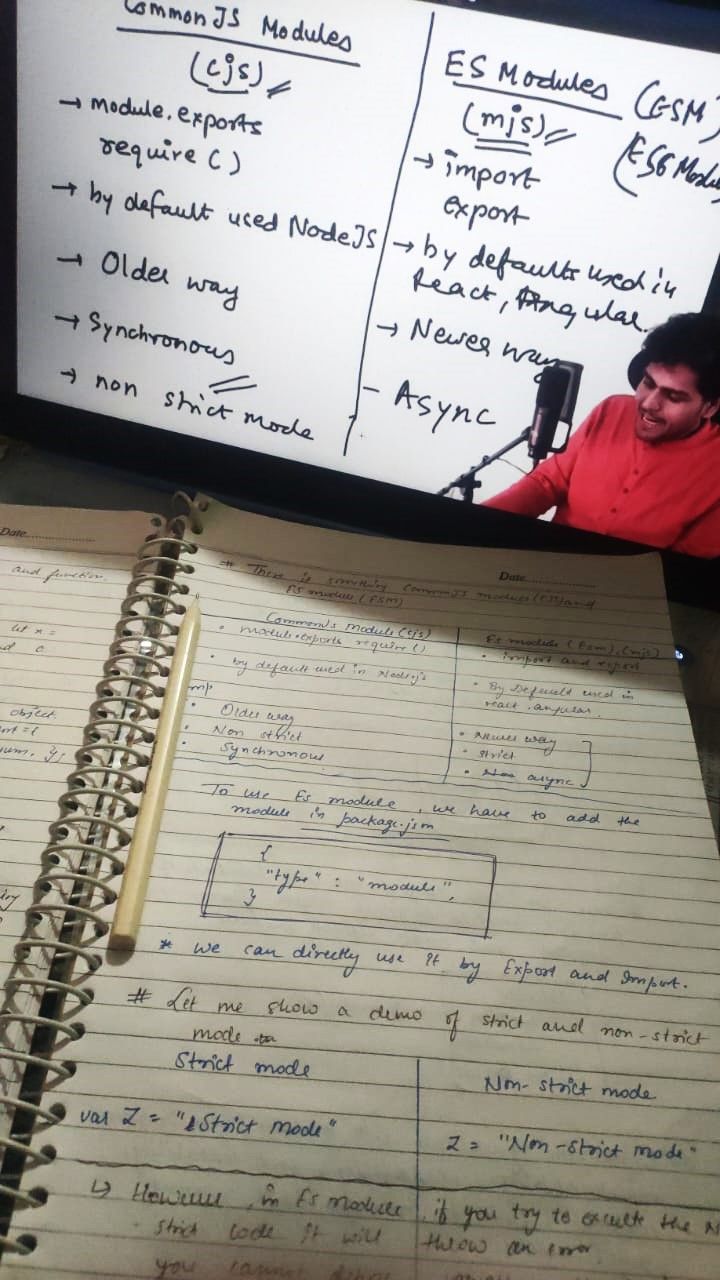 Common JS Modules
(cjs)
→ module.exports
require ( )
→ by default used NodeJS
→ Older way
→ Synchronous
→ non strict mode
ES Modules (ESM)
(mjs)
(ES6 Modu
→ import
export
→ by defaults used in
React, Angular.
→ Newer way
- Async
Date
and function.
let x =
object
Date
# There is something CommonJS modules (CJS) and
ES modules (ESM)
CommonJs Module (cjs)
• module.exports require ()
• by default used in Nodejs
mp
• Older way
• Non strict
• Synchronous
Es modules (Esm), (mjs)
• import and export
• By Default used in
react, angular.
• Newer way
• strict
• async
To use Es module, we have to add the
module in package.json
{
"type" : "module",
}
* we can directly use it by Export and Import.
# Let me show a demo of strict and non-strict
mode
Strict mode
var Z = "Strict mode"
Non-strict mode
Z = "Non-strict mode"
↳ However, in Es module, if you try to execute the
strict code it will throw an error
you cannot